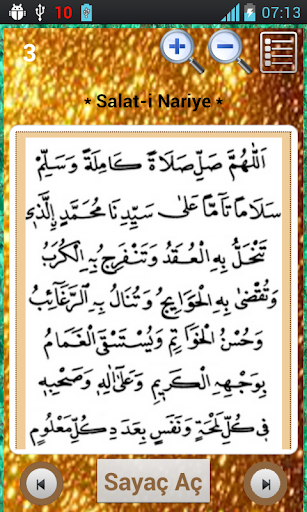 10
07:13
3
* Salat-i Nariye *
اَللّٰهُمَّ صَلِّ صَلَاةً كَامِلَةً وَسَلِّمْ
سَلَامًا تَآمًّا عَلٰى سَيِّدِنَا مُحَمَّدٍ الَّذِي
تَنْحَلُّ بِهِ الْعُقَدُ وَتَنْفَرِجُ بِهِ الْكُرَبُ
وَتُقْضٰى بِهِ الْحَوَايِجُ وَتُنَالُ بِهِ الرَّغَآئِبُ
وَحُسْنُ الْخَوَاتِمِ وَيُسْتَسْقَى الْغَمَامُ
بِوَجْهِهِ الْكَرِيمِ وَعَلٰى اٰلِهِ وَصَحْبِهِ
فِي كُلِّ لَمْحَةٍ وَنَفَسٍ بِعَدَدِ كُلِّ مَعْلُومٍ
Sayaç Aç